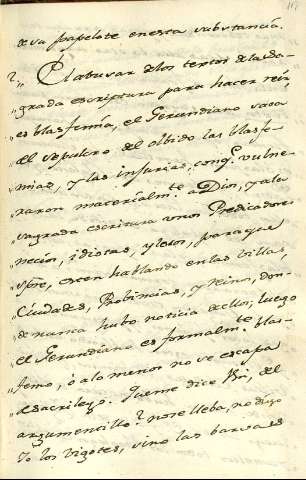 de su papelote en esta substancia.
2,, El abusar de los textos de la Sa-
,,grada escriptura para hacer reír,
,,es blasfemia, el Gerundiano saca
,,del sepulcro del olbido las blasfe-
,,mias, y las injurias, con q.e vulne-
,,raron material m.te a Dios, y a la
,,sagrada escritura unos Predicadores
,,necios, idiotas, y lesos, para que
,,spre, esten hablando en las villas,
,,Ciudades, Probincias, y Reino, don-
,,de nunca hubo noticia de ellos; luego
,,el Gerundiano es formalm.te blas-
,,femo, ó a lo menos no se escapa
,,de sacrilego. Que me dice Bi, del
argumencillo? no se lleba, no digo
Yo los vigotes, sino las barvas